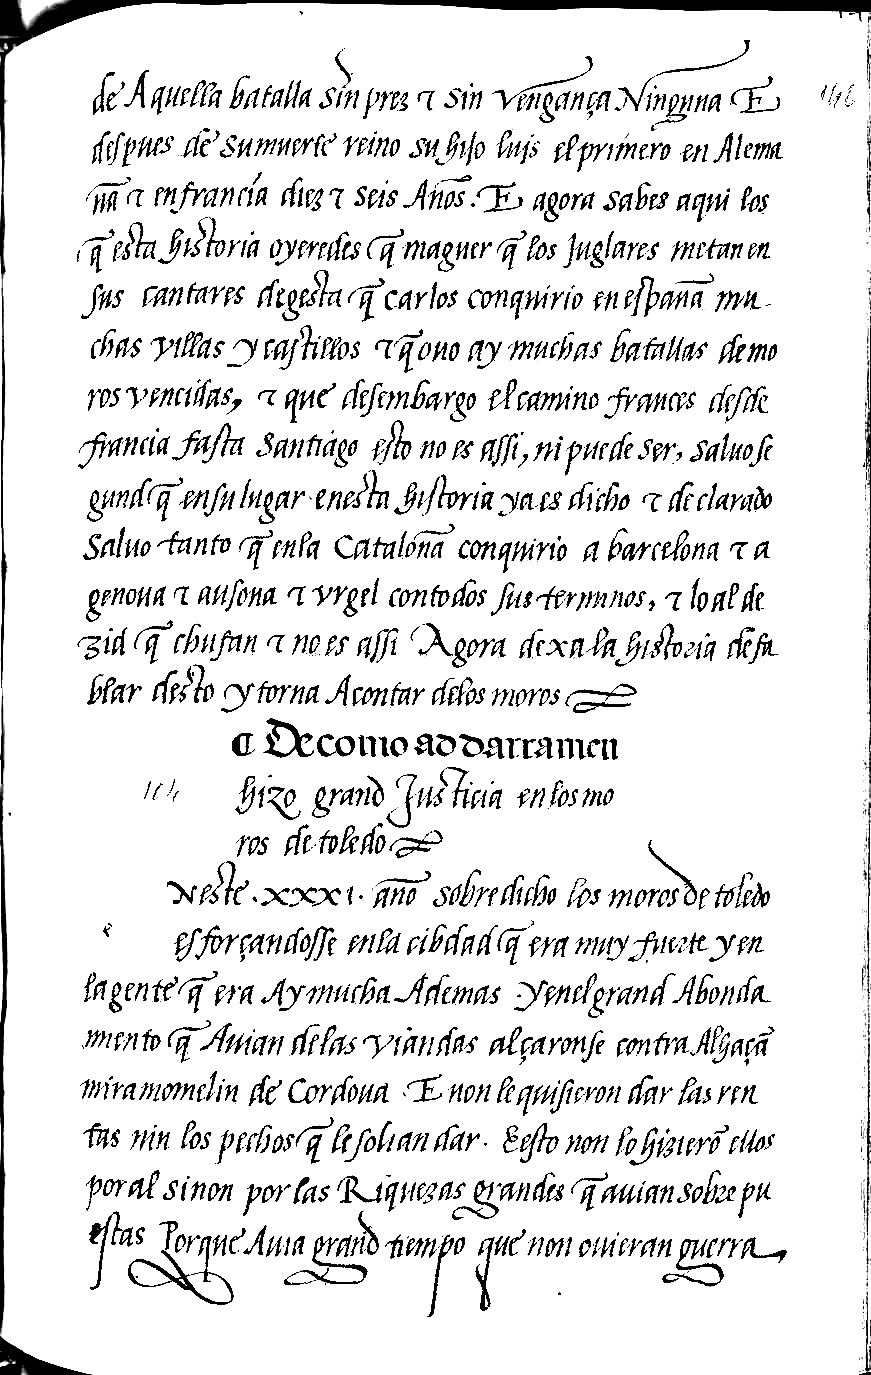 de Aquella batalla sin prez τ sin vengança Ninguna E
despues de su muerte reino su hijo luis el primero en Alema
ña τ en francia diez τ seis Años. E agora sabes aqui los
q̃ esta historia oyeredes q̃ maguer q̃ los Juglares metan en
sus cantares de gesta q̃ Carlos conquirio en españa mu
chas villas y castillos τ q̃ ouo ay muchas batallas de mo
ros vencidas, τ que desembargo el camino frances desde
francia fasta Santiago esto no es assi, ni puede ser, saluo se
gund q̃ en su lugar enesta historia ya es dicho τ declarado
Saluo tanto q̃ enla Cataloña conquirio a barcelona τ a
genoua τ ausona τ vrgel con todos sus terminos, τ lo al de
zid q̃ chufan τ no es assi Agora dexa la historia de fa
blar desto y torna Acontar delos moros
¶ De como addarramen
104 hizo grand Justicia en los mo
ros de toledo
Neste .xxxi. año sobredicho los moros de toledo
e esforçandosse enla cibdad q̃ era muy fuerte y en
la gente q̃ era Ay mucha Ademas y en el grand Abonda
miento q̃ Auian delas viandas alçaronse contra Alhaçã
miramomelin de Cordoua. E non le quisieron dar las ren
tas nin los pechos q̃ le solian dar. E esto non lo hizierõ ellos
por al sinon por las Riquezas grandes q̃ auian sobre pu
estas Porque Auia grand tiempo que non ouieran guerra,